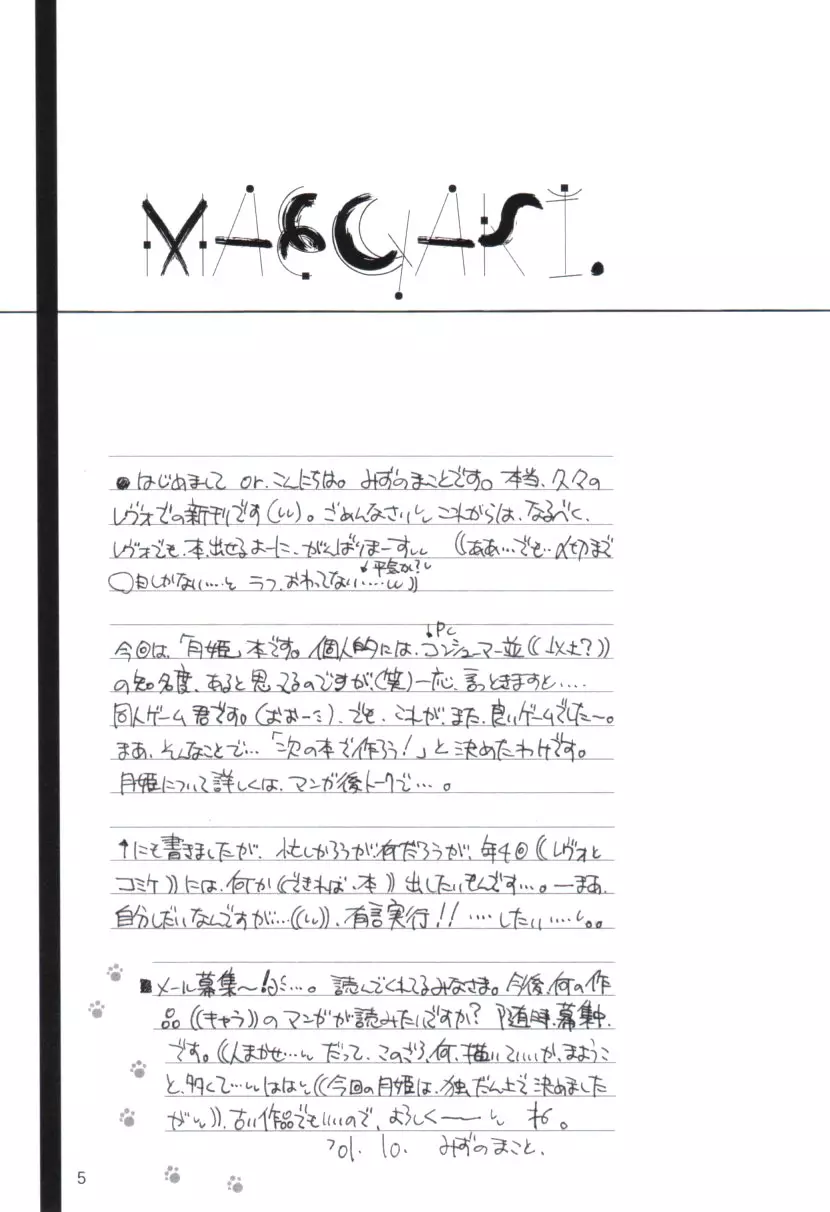 MAEGAKI.
●はじめまして or. こんにちは。みずのまことです。本当、久々の
レヴォでの新刊です(いい)。ごめんなさいし、これからは、なるべく、
レヴォでも、本、出せるよーに、がんばりまーすぃぃ ((ああ…でも…〆切まで
↓平気か?し
〇日しかない……と ラフ、おわってない……いい))
↓PC
今回は、「月姫」本です。個人的には、コンシューマー並((以上?))
の知名度、あると思ってるのですが、(笑)一応、言っときますと……
同人ゲーム君です。(おおーミ)、でも、これが、また、良いゲームでした〜。
まあ、そんなことで…「次の本で作ろう!」と決めたわけです。
月姫について詳しくは、マンガ後トークで…。
↑にも書きましたが、忙しかろうが何だろうが、年4回((レヴォと
コミケ))には、何か((できれば、本))出したいもんです…。―まあ、
自分しだいなんですが…((いい))、有言実行!! ‥‥したい‥‥し。。
■メール募集〜!…。読んでくれてるみなさま。今後、何の作
品((キャラ))のマンガが読みたいですか?随時、募集中、
です。((人まかせ…い だって、このごろ、何、描いていいか、まようこ
と、多くて…いははい((今回の月姫は、独だん上で決めました
がい))、古い作品でもいいので、よろしく――い ね。
'01. 10. みずのまこと、
5